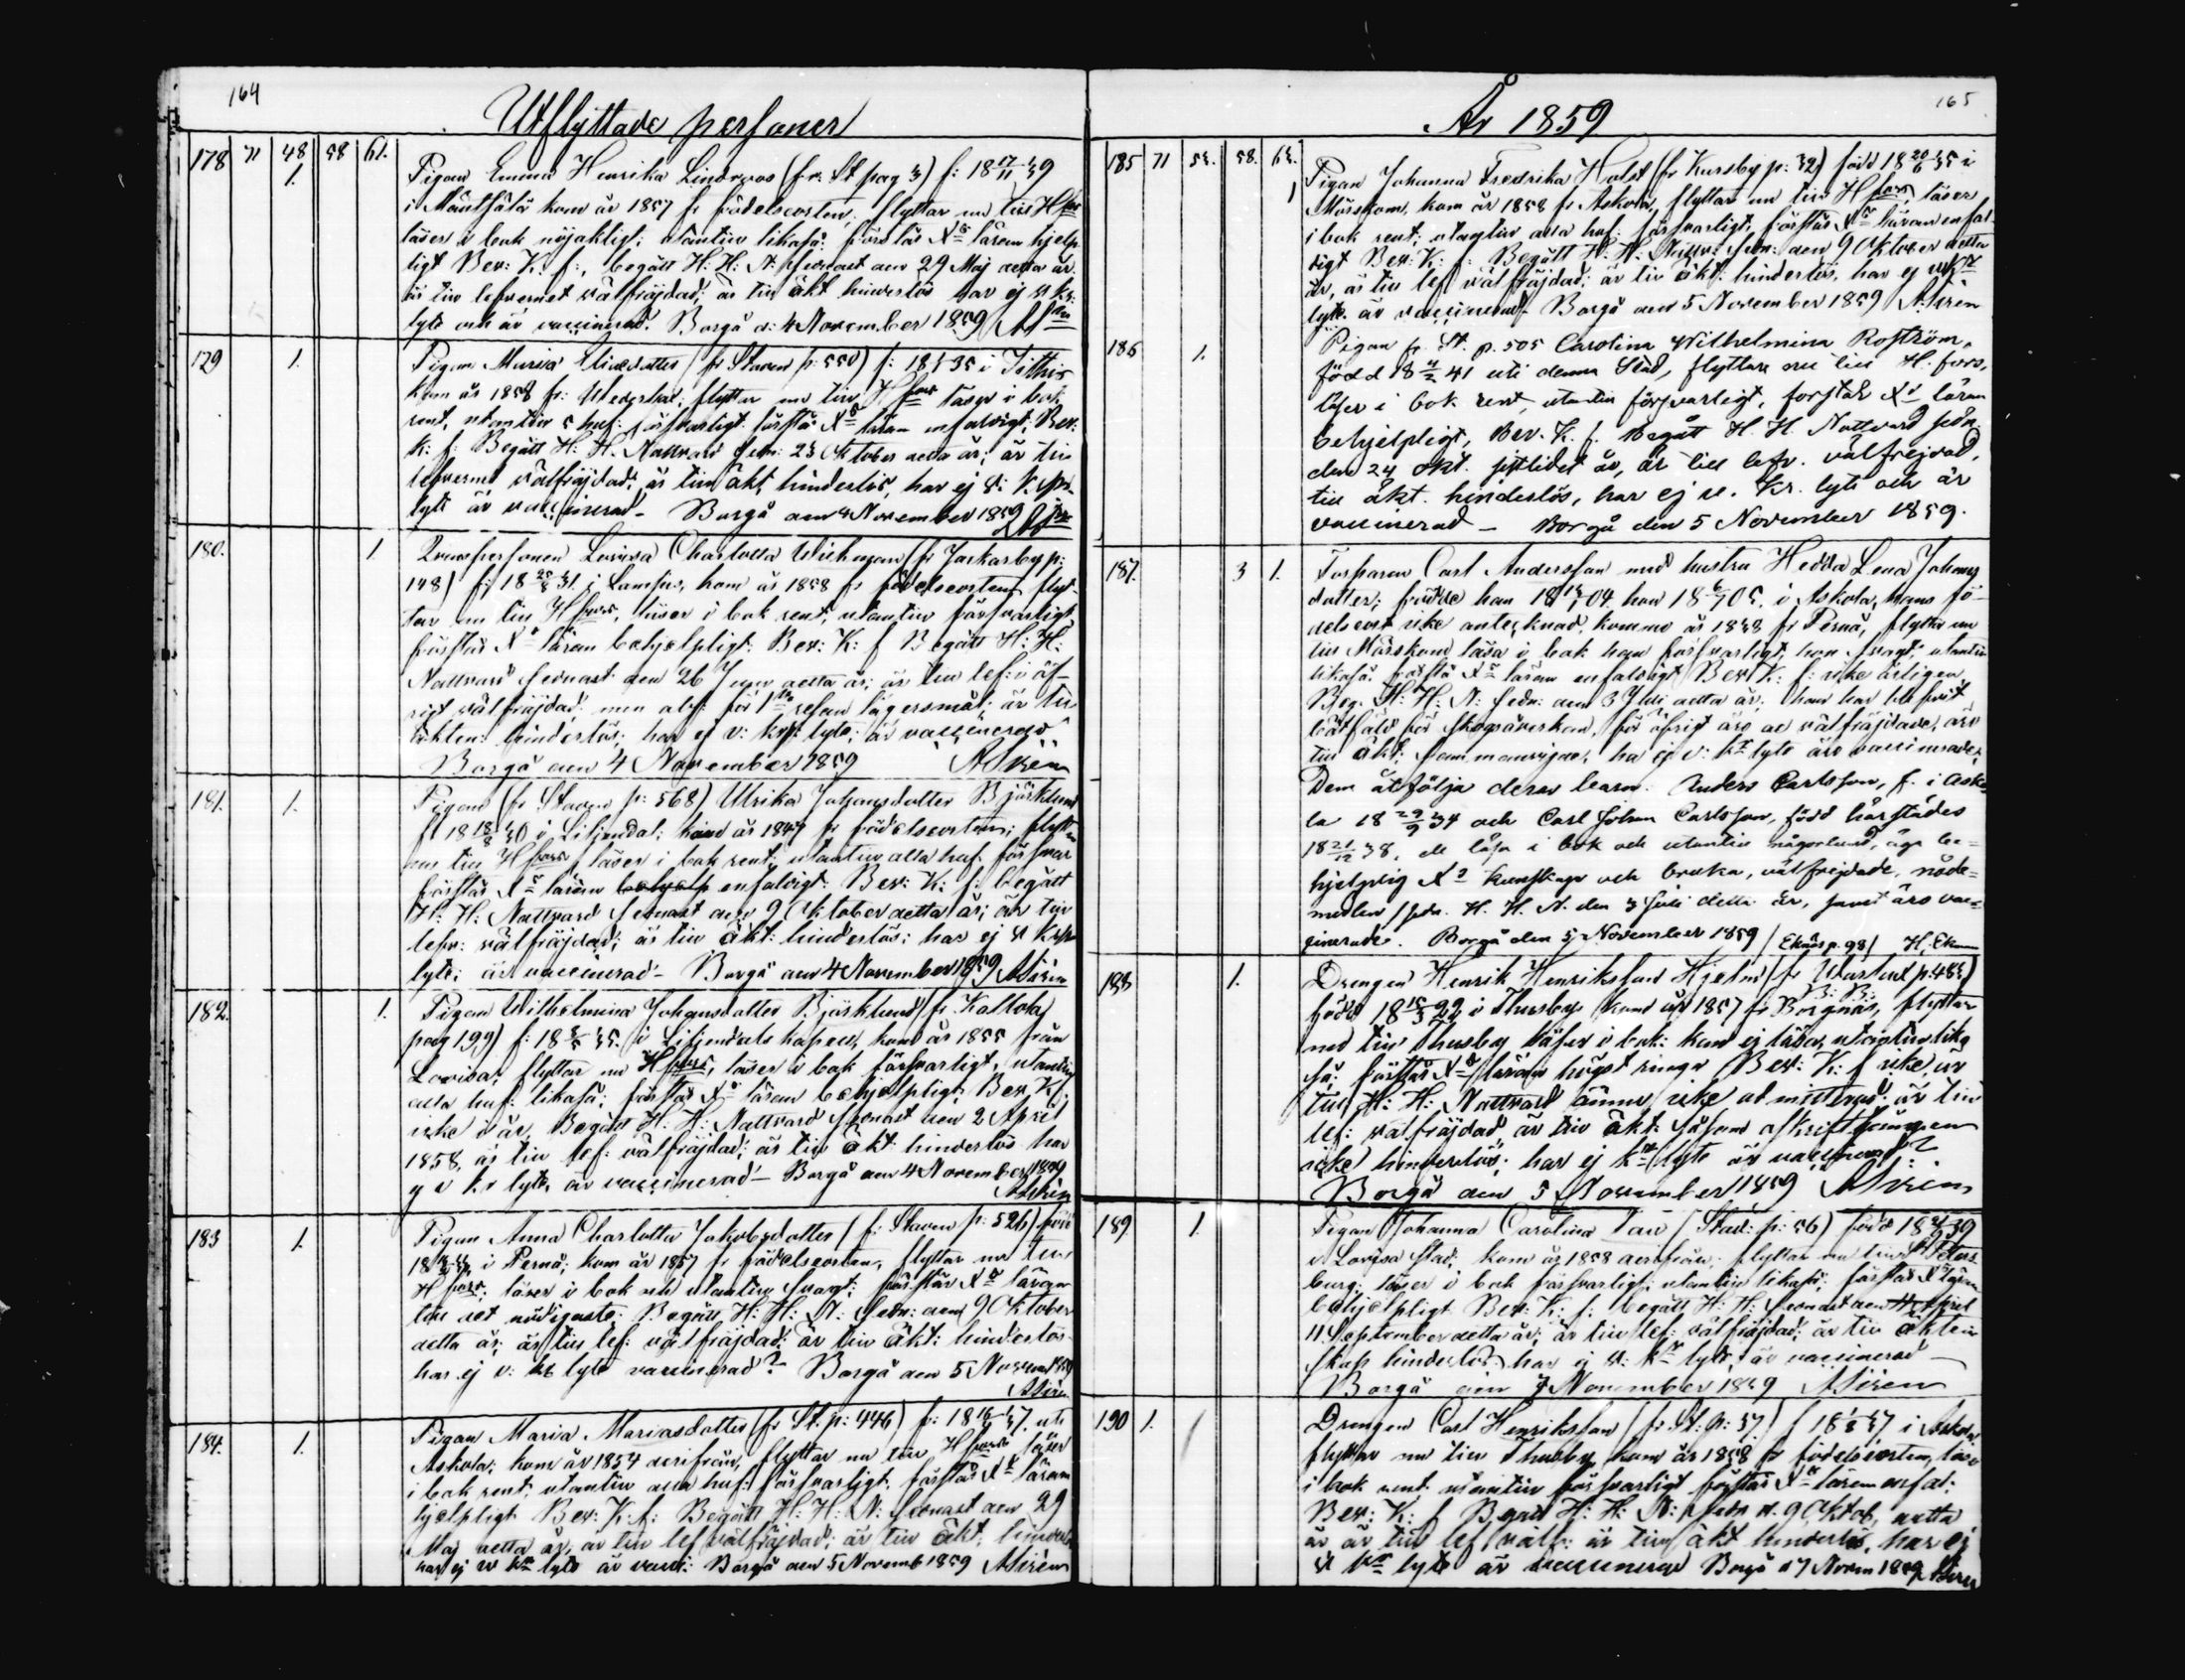 164
Utflyttade personer
178 71 48 58 61.
1.
Pigan Emma Henrika Lindroos (fr. St pag 3) f: 18 17/11 39
i Mäntsälä kom år 1857 fr födelseorten, flyttar nu till Hfors
läser i bok nöjaktligt; utantill likaså: förstår Xs läran hjelp
ligt Bev: K: f:, begått H: H: N: senast den 29 Maj detta år
är till lefvernet välfräjdad; är till äkt hinderlös har ej v kr:
lyte och är vaccinerad. Borgå d: 4 November 1859
179 1.
Pigan Maria (fr Staden p: 550) f: 18 35 i
kom år 1858 fr: flyttar nu till Hfors läser i bok
rent, utantill 5 huf: försvarligt förstår Xs läran enfaldigt; Bev:
K: f: Begått H: H. Nattvard sedn: 23 Oktober detta år; är till
lefvernet välfräjdad; är till äkt hinderlös, har ej v: K
lyte är vaccinerad - Borgå den 4 November 1859
180. 1.
Qvinspersonen Lovisa Charlotta Wickman (fr Jackarby p:
148) f: 18 31 i kom år 1858 fr födelseorten flyt-
tar nu till Hfors, läser i bok rent, utantill försvarligt,
förstår Xs läran behjelpligt: Bev: K: f Begått H: H:
Nattvard senast den 26 Juni detta år; är till lef: i öf-
rigt välfräjdad: men abs: för 1sta resan lägersmål; är till
äkten: hinderlös; har ej v: kr: lyte; är vaccinerad
Borgå den 4 November 1859 ASirén
181. 1.
Pigan (fr Staden p: 568) Ulrika Johansdotter Björklund
f 18 18/8 30 i Liljendal; kom år 1847 fr födelseorten; flyttar
nu till Hfors läser i bok rent; utantill alla huf. försvar
förstår Xs läran enfaldigt: Bev: K: f: begått
H: H: Nattvard senast den 9 Oktober detta år; är till
lefv: välfräjdad; är till äkt: hinderlös: har ej v Kr
lyte; är vaccinerad - Borgå den 4 November 1859 ASirén
182. 1.
Pigan Wilhelmina Johansdotter Björklund (fr. Kallola
pag 199) f: 18 35. i Liljendals kapell, kom år 1855 från
Lovisa, flyttar nu Hfors, läser i bok försvarligt, utantill
alla huf: likaså; förstår Xs läran behjelpligt; Bev: K f:
icke i år, Begått H: H: Nattvard senast den 2 April
1858, är till lef: välfräjdad; är till äkt: hinderlös har
ej v kr lyte, är vaccinerad - Borgå den 4 November 1859
ASirén
183 1.
Pigan Anna Charlotta Jakobsdotter (fr Staden p: 526) född
18 i Pernå; kom år 1857 fr födelseorten, flyttar nu till
H fors; läser i bok och utantill svagt; förstår Xs läran
till det nödigaste; Begått H: H: N: sedn: den 9 Oktober
detta år; är till lef: välfräjdad; är till äkt: hinderlös
har ej v: kr lyte vaccinerad? Borgå den 5 Novemb 1859
ASirén
184. 1.
Pigan Maria Mariasdotter (fr St. p: 446) f: 18 37. uti
Askola; kom år 1854 derifrån, flyttar nu till Hfors läser
i bok rent. utantill alla huf: försvarligt. förstår Xs läran
hjelpligt Bev: K: f: Begått H: H: N: senast den 29
Maj detta år, är till lef välfräjdad; är till äkt. hinderlös
har ej v kr lyte är vacci: Borgå den 5 Novemb 1859 ASirén
165
År 1859
185 71 58.
1
Pigan Johanna Fredrika Holst (fr Kursby p: 32) född 18 20/6 35 i
Mörskom, kom år 1858 fr Askola, flyttar nu till H fors, läser
i bok rent; utantill alla huf: försvarligt, förstår Xs läran enfal-
digt Bev: K: f: Begått H: H: Nattv: sedn: den 9 Oktober detta
år, är till lef välfräjdad: är till äkt: hinderlös, har ej v kr
lyte. är vaccinerad - Borgå den 5 November 1859 ASirén
186 1.
Pigan fr. St. p. 505 Carolina Wilhelmina Roström,
född 18 41 uti denna Stad, flyttar nu till H:fors,
läser i bok rent, utantill försvarligt, förstår Xs läran
behjelpligt, Bev. K. f. Begått H. H. Nattvard sedn.
den 24 Okt. sistlidet år, är till lefv. välfrejdad,
till äkt. hinderlös, har ej v. Kr. lyte och är
vaccinerad - Borgå den 5 November 1859.
187. 3 1.
Torparen Carl Andersson med hustru Hedda Lena Johans
dotter; födde han 18 04 hon 18 6/7 05. i Askola, hans fö-
delseort icke antecknad, kommo år 1838 fr Pernå, flytta nu
till Mörskom läsa i bok han försvarligt, hon svagt, utantill
likaså. förstå Xs läran enfaldigt Bev: K: f: icke årligen.
Beg. H: H: N: sedn: den 3 Juli detta år; han har
för skogsåverkan, för öfrigt äro de välfräjdade, äro
till äkt: sammanvigde, ha ej v: kr lyte äro vaccinerade;
Dem åtfölja deras barn: Anders Carlsson, f. i Asko-
la 18 29/9 34 och Carl Johan Carlsson, född härstädes
18 21/12 38, de läsa i bok och utantill någorlunda, äga be-
hjelplig Xs kunskap och bruka, välfrejdade, nåde-
medlen sedn. H. H. N. den 3 Juli detta år, samt äro vac-
cinerade. Borgå den 5 November 1859 / Eknäs p. 98/ H: Ekman
188 1.
Drengen Henrik Henriksson Hjelm (fr p. 484)
född 18 15/3 22 i Thusby kom år 1857 fr Borgnäs, flyttar
nu till Thusby läser i bok: kan ej läsa, utantill lika
så; förstår Xs läran högst ringa Bev: K: f icke, är
till H: H: Nattvard ännu icke admitterad: är till
lef: välfräjdad, är till äkt: såsom oskriftgången
icke hinderlös; har ej kr lyte är vaccinerad?
Borgå den 5 November 1859 ASirén
189 1.
Pigan Johanna Carolina Tau (Stad: p: 56) född 18 39
i Lovisa stad; kom år 1858 derifrån; flyttar nu till St Peters
burg; läser i bok försvarligt; utantill likaså; förstår Xs läran
behjelpligt Bev: K: f: begått H: H: senast den
11 September detta år; är till lef: välfräjdad; är till äkten
skap hinderlös; har ej v: kr lyte, är vaccinerad -
Borgå den 7 November 1859 ASirén
190 1.
Drengen Carl Henriksson (fr St: p: 37.) f 18 37 i Askola
flyttar nu till Thusby kom år 1858 fr födelseorten, läser
i bok rent utantill försvarligt förstår Xs läran enfal:
Bev: K: f Begått H: H: N: sedn d. 9 Oktob, detta
år är till lef välf: är till äkt hinderlös, har ej
v kr lyte är vaccinerad Borgå d 7 Novem 1859 ASirén